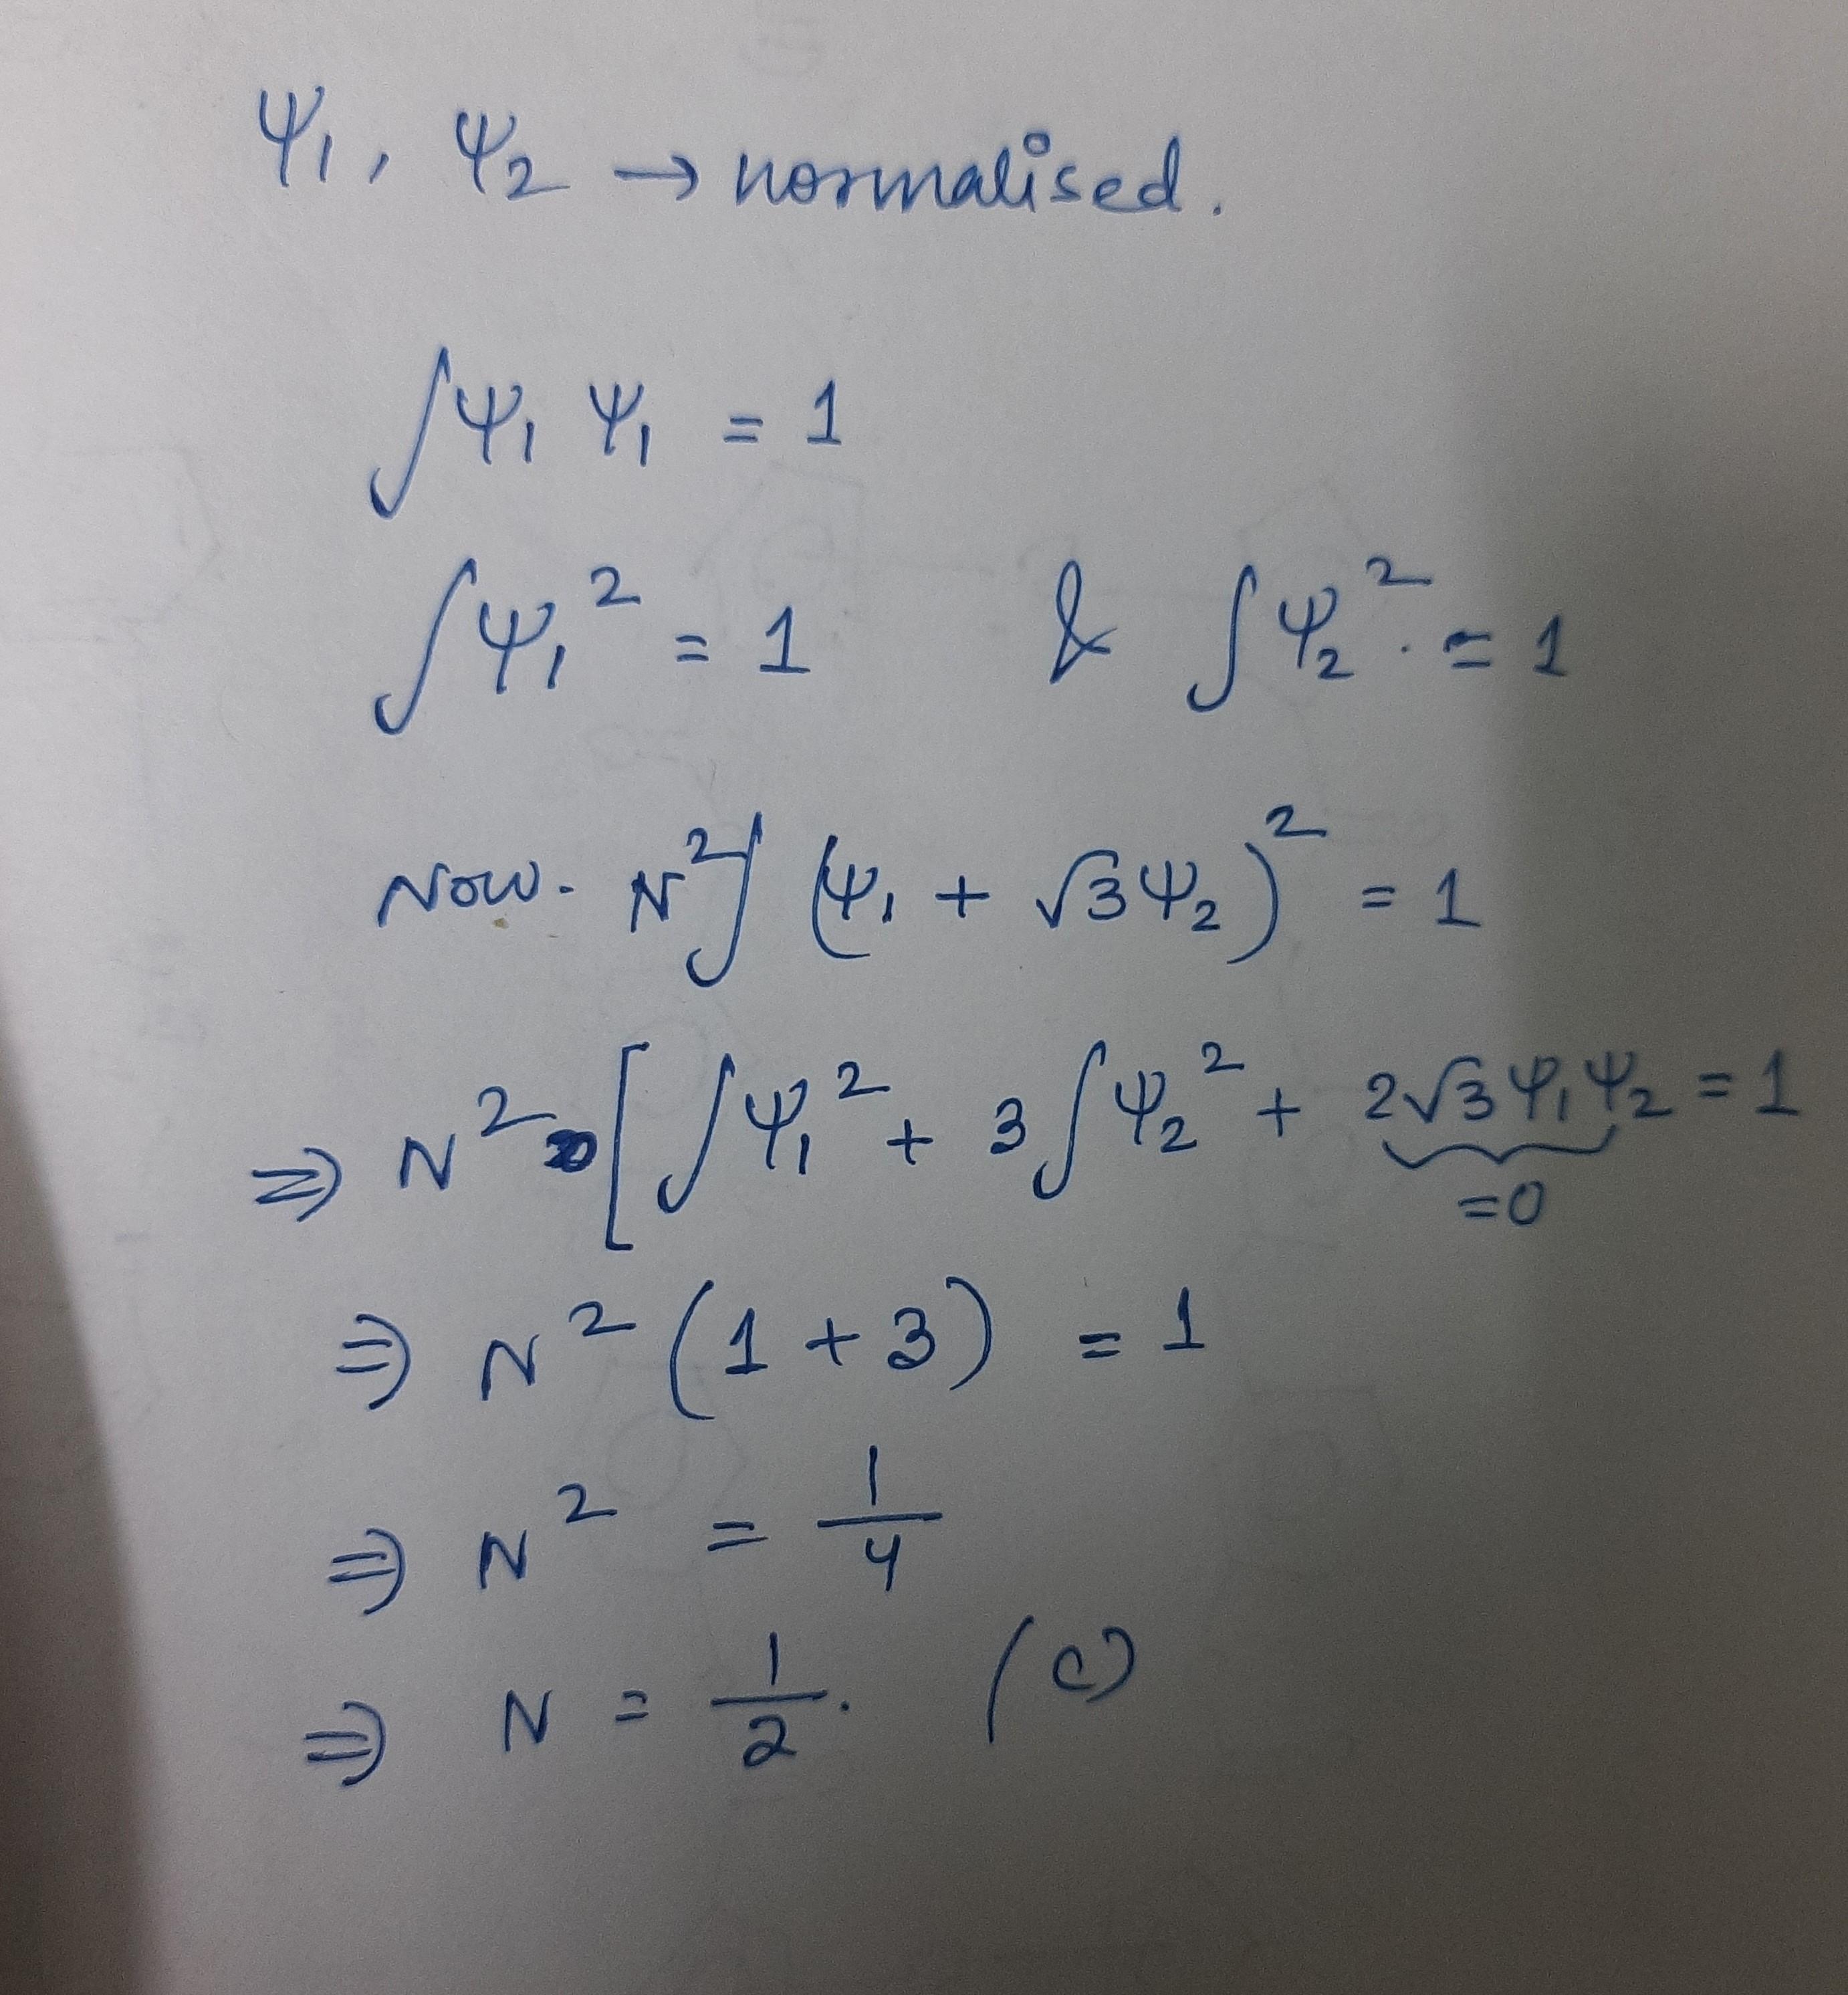 Ψ₁, Ψ₂ → normalised.
∫Ψ₁ Ψ₁ = 1
∫Ψ₁² = 1 & ∫Ψ₂². = 1
Now. N²∫(Ψ₁ + √3Ψ₂)² = 1
⇒ N² [∫Ψ₁² + 3∫Ψ₂² + 2√3Ψ₁Ψ₂ = 1
=0
⇒ N² (1 + 3) = 1
⇒ N² = 1/4
⇒ N = 1/2. (c)